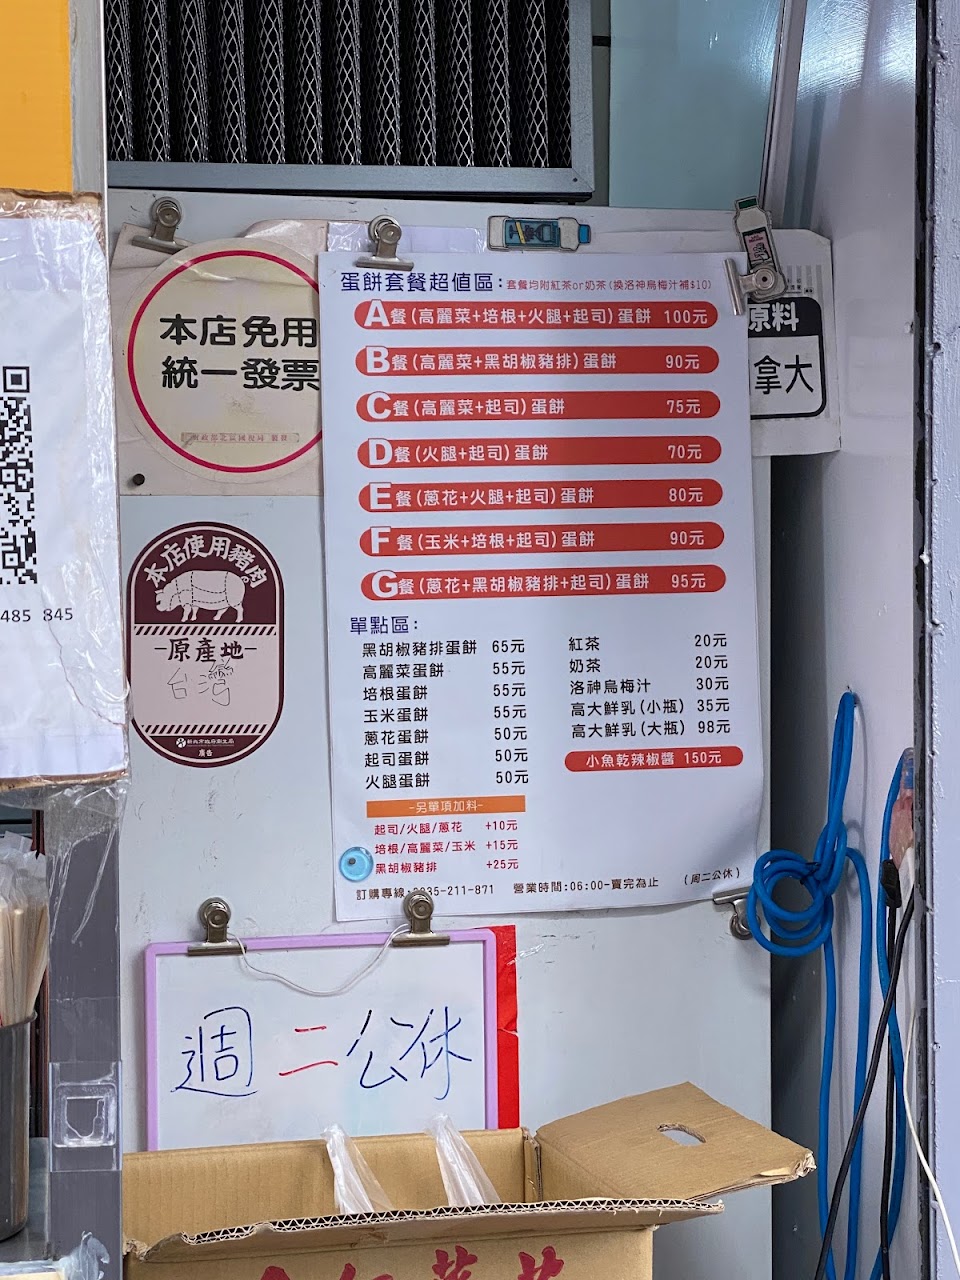 本店免用
統一發票
485 845
本店使用豬肉
-原產地-
台灣
新北市政府衛生局
廣告
蛋餅套餐超值區:套餐均附紅茶or奶茶(換洛神烏梅汁補$10)
A餐(高麗菜+培根+火腿+起司)蛋餅 100元
B餐(高麗菜+黑胡椒豬排)蛋餅 90元
C餐(高麗菜+起司)蛋餅 75元
D餐(火腿+起司)蛋餅 70元
E餐(蔥花+火腿+起司)蛋餅 80元
F餐(玉米+培根+起司)蛋餅 90元
G餐(蔥花+黑胡椒豬排+起司)蛋餅 95元
單點區:
黑胡椒豬排蛋餅 65元
高麗菜蛋餅 55元
培根蛋餅 55元
玉米蛋餅 55元
蔥花蛋餅 50元
起司蛋餅 50元
火腿蛋餅 50元
紅茶 20元
奶茶 20元
洛神烏梅汁 30元
高大鮮乳(小瓶) 35元
高大鮮乳(大瓶) 98元
小魚乾辣椒醬 150元
-另單項加料-
起司/火腿/蔥花 +10元
培根/高麗菜/玉米 +15元
黑胡椒豬排 +25元
訂購專線:0935-211-871 營業時間:06:00-賣完為止 (周二公休)
原料
拿大
週二公休